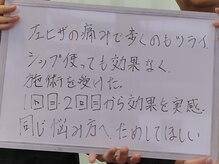 フェ ヒザの痛みで歩くのもツライ
シップ使っても効果なく
施術を受けた。
1回目・2回目から効果を実感。
同じ悩み方へ、ためしてほしい